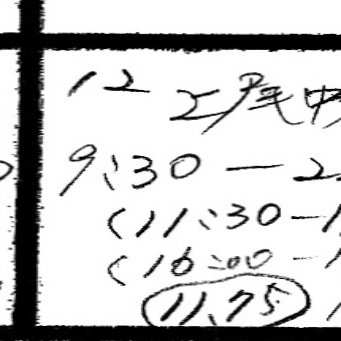 12 工尾中
9:30 — 2
(11:30 – 1
(16:00 – 1
11.75